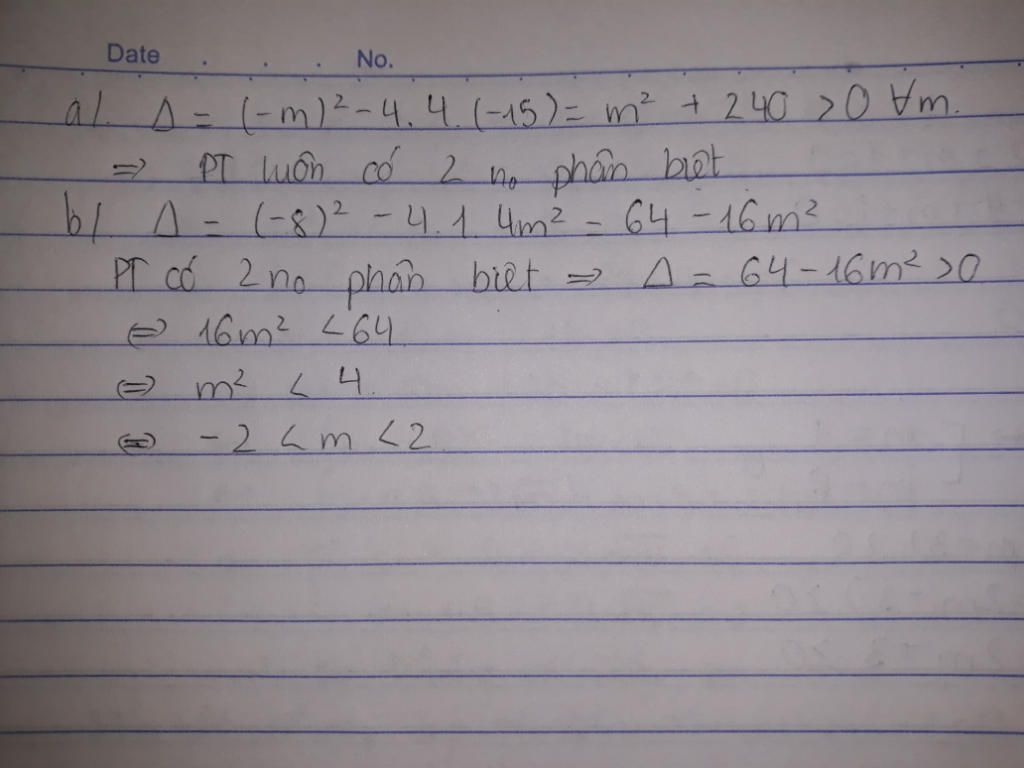 Date . . . No.
a/. Δ = (-m)² - 4. 4. (-15) = m² + 240 > 0 ∀m.
=> PT luôn có 2 n₀ phân biệt
b/. Δ = (-8)² - 4. 1. 4m² = 64 - 16m²
PT có 2 n₀ phân biệt => Δ = 64 - 16m² > 0
<=> 16m² < 64
<=> m² < 4.
<=> -2 < m < 2